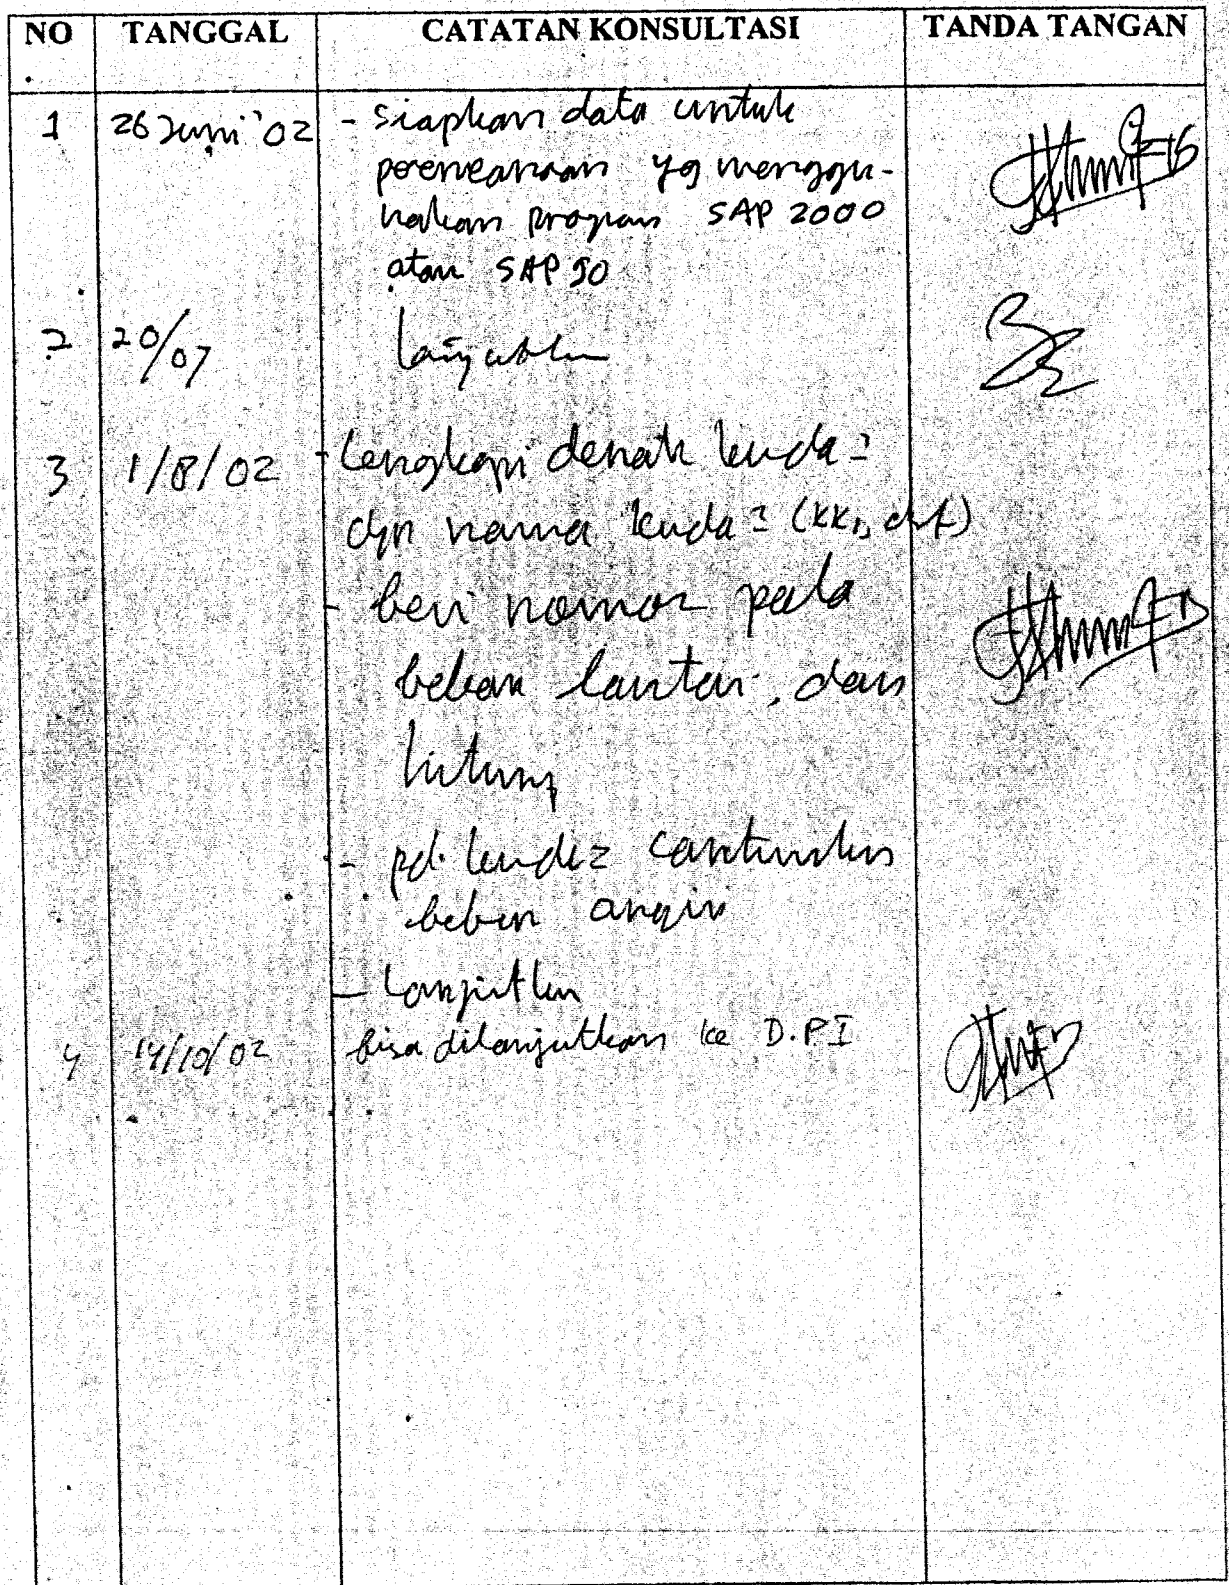 NO TANGGAL CATATAN KONSULTASI TANDA TANGAN
1 26 Juni '02 - siapkan data untuk
perencanaan yg menggu-
nakan program SAP 2000
atau SAP 90
2 20/07 lanjutkan
3 1/8/02 - Lengkapi denah kuda2
dgn nama kuda2 (KK1, dst)
- beri nomor pada
beban lantai, dan
hitung
- pd. kuda2 cantumkan
beban angin
- Lanjutkan
4 14/10/02 bisa dilanjutkan ke D.P I